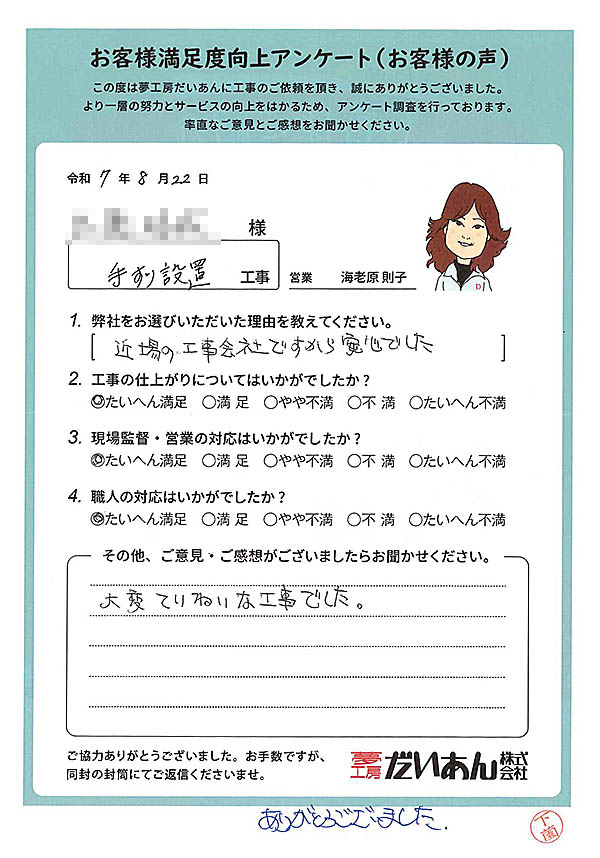 お客様満足度向上アンケート(お客様の声)
この度は夢工房だいあんに工事のご依頼を頂き、誠にありがとうございました。
より一層の努力とサービスの向上をはかるため、アンケート調査を行っております。
率直なご意見とご感想をお聞かせください。
令和 7 年 8 月 22 日
様
手すり設置 工事 営業 海老原 則子
D
1. 弊社をお選びいただいた理由を教えてください。
[ 近場の工事会社ですから安心でした ]
2. 工事の仕上がりについてはいかがでしたか?
◎たいへん満足 ○満 足 ○やや不満 ○不 満 ○たいへん不満
3. 現場監督・営業の対応はいかがでしたか?
◎たいへん満足 ○満 足 ○やや不満 ○不 満 ○たいへん不満
4. 職人の対応はいかがでしたか?
◎たいへん満足 ○満 足 ○やや不満 ○不 満 ○たいへん不満
その他、ご意見・ご感想がございましたらお聞かせください。
大変ていねいな工事でした。
ご協力ありがとうございました。お手数ですが、
同封の封筒にてご返信くださいませ。
夢工房 だいあん 株式会社
ありがとうございました.
下薗